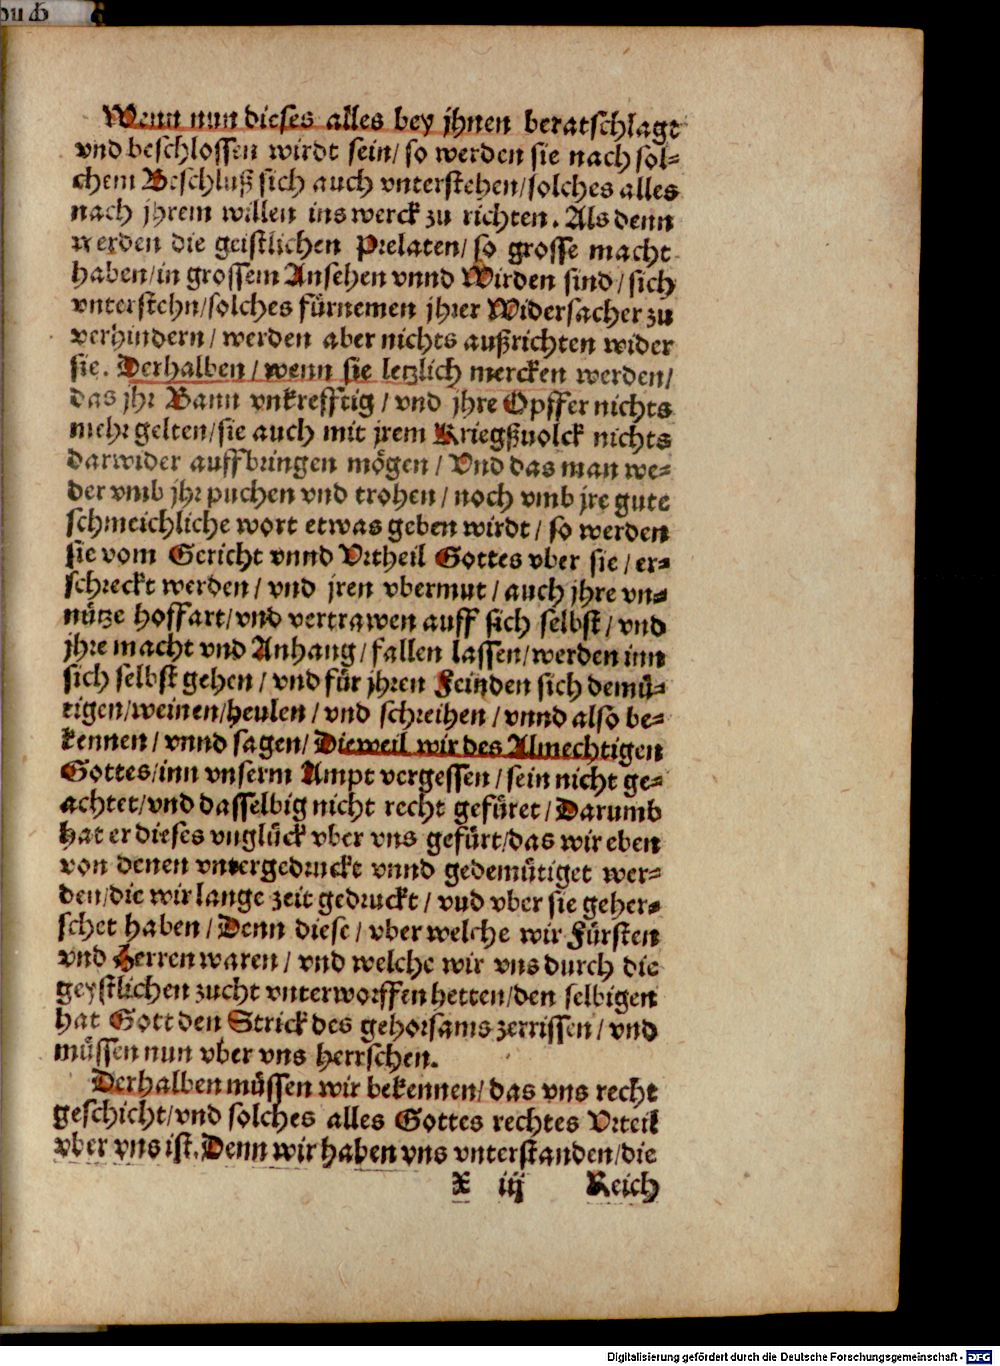 Wenn nun dieses alles bey jhnen beratschlagt
vnd beschlossen wirdt sein/ so werden sie nach sol-
chem Beschluß sich auch vnterstehen/solches alles
nach jhrem willen ins werck zu richten. Als denn
werden die geistlichen Prelaten/ so grosse macht
haben/in grossem Ansehen vnnd Wirden sind/ sich
vnterstehn/solches fürnemen jhrer Widersacher zu
verhindern/ werden aber nichts außrichten wider
sie. Derhalben/ wenn sie letzlich mercken werden/
das jhr Bann vnkrefftig/ vnd jhre Opffer nichts
mehr gelten/sie auch mit jrem Kriegßuolck nichts
darwider auffbringen mögen/ Vnd das man we-
der vmb jhr puchen vnd trohen/ noch vmb jre gute
schmeichliche wort etwas geben wirdt/ so werden
sie vom Gericht vnnd Vrtheil Gottes vber sie/ er-
schreckt werden/ vnd jren vbermut/ auch jhre vn-
nütze hoffart/vnd vertrawen auff sich selbst/ vnd
jhre macht vnd Anhang/ fallen lassen/werden inn
sich selbst gehen/ vnd für jhren Feinden sich demü-
tigen/weinen/heulen/ vnd schreihen/ vnnd also be-
kennen/ vnnd sagen/ Dieweil wir des Almechtigen
Gottes/inn vnserm Ampt vergessen/ sein nicht ge-
achtet/vnd dasselbig nicht recht gefüret/ Darumb
hat er dieses vnglück vber vns gefürt/das wir eben
von denen vntergedruckt vnnd gedemütiget wer-
den/die wir lange zeit gedruckt/ vnd vber sie geher-
schet haben/ Denn diese/ vber welche wir Fürsten
vnd Herren waren/ vnd welche wir vns durch die
geystlichen zucht vnterworffen hetten/den selbigen
hat Gott den Strick des gehorsams zerrissen/ vnd
müssen nun vber vns herrschen.
Derhalben müssen wir bekennen/ das vns recht
geschicht/vnd solches alles Gottes rechtes Vrteil
vber vns ist. Denn wir haben vns vnterstanden/die
X iij Reich
Digitalisierung gefördert durch die Deutsche Forschungsgemeinschaft - DFG